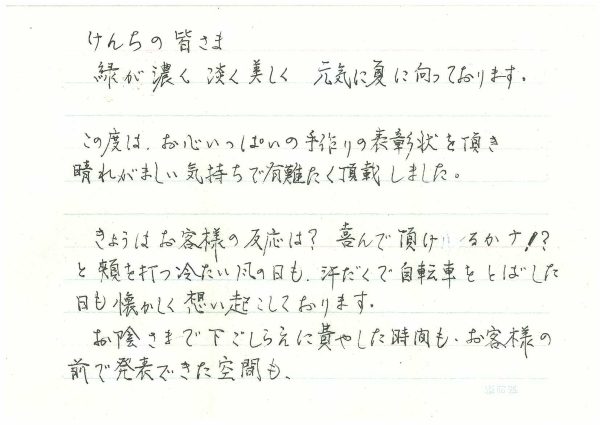 けんちの皆さま
緑が濃く淡く美しく 元気に夏に向っております。
この度は、お心いっぱいの手作りの表彰状を頂き
晴れがましい気持ちで有難たく頂戴しました。
きょうはお客様の反応は？ 喜んで頂けるかナ！？
と頬を打つ冷たい風の日も、汗だくで自転車をとばした
日も懐かしく想い起こしております。
お陰さまで下ごしらえに費やした時間も、お客様の
前で発表できた空間も、